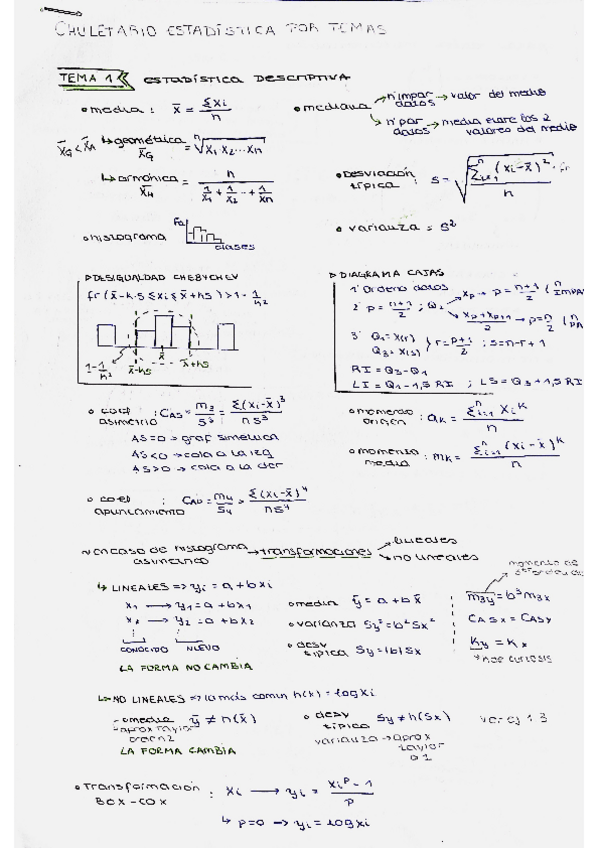 CHULETARIO ESTADÍSTICA POR TEMAS
TEMA 1 ESTADÍSTICA DESCRIPTIVA
• media : x̄ = Σxi / n
• mediana → nº impar datos → valor del medio
→ nº par datos → media entre los 2 valores del medio
x̄G < x̄A
↳ geométrica x̄G = ⁿ√(x1·x2...xn)
↳ armónica x̄H = n / (1/x1 + 1/x2 + ... + 1/xn)
• desviación típica : s = √(Σi=1ⁿ (xi - x̄)² · fr / n)
• histograma
Fa
clases
• varianza = s²
▷ DESIGUALDAD CHEBYCHEV
fr (x̄ - k·s ≤ xi ≤ x̄ + ks) > 1 - 1/k²
1 - 1/k² x̄-ks x̄ x̄+ks
▷ DIAGRAMA CAJAS
1º Ordeno datos
2º p = (n+1)/2 ; Q2 → xp → p = (n+1)/2 (n IMPA
→ (xp + xp+1)/2 → p = n/2 (n PA
3º Q1 = x(r)
Q3 = x(s) } r = (p+1)/2 ; s = n - r + 1
RI = Q3 - Q1
LI = Q1 - 1,5 RI ; LS = Q3 + 1,5 RI
• coef asimetría : CAS = m3/s³ = Σ(xi - x̄)³ / ns³
AS = 0 → graf simétrica
AS < 0 → cola a la izq
AS > 0 → cola a la der
• momento origen : aK = Σi=1ⁿ xi^K / n
• momento media : mK = Σi=1ⁿ (xi - x̄)^K / n
• coef apuntamiento : CAp = m4/s4 = Σ(xi - x̄)⁴ / ns⁴
~ en caso de histograma asimétrico → transformaciones → lineales
→ no lineales
↳ LINEALES => yi = a + bxi
x1 → y1 = a + bx1
x2 → y2 = a + bx2
CONOCIDO NUEVO
LA FORMA NO CAMBIA
• media ȳ = a + bx̄
• varianza Sy² = b² Sx²
• desv típica Sy = |b| Sx
momento de
m3y = b³m3x
CASx = CASy
Ky = Kx
curtosis
↳ NO LINEALES => la más común h(x) = log xi
- media ȳ ≠ h(x̄)
→ aprox taylor orden 2
LA FORMA CAMBIA
• desv típica Sy ≠ h(Sx)
varianza → aprox taylor o 1
ver ej 1.3
• Transformación BOX-COX : xi → yi = (xi^p - 1) / p
↳ p = 0 → yi = log xi